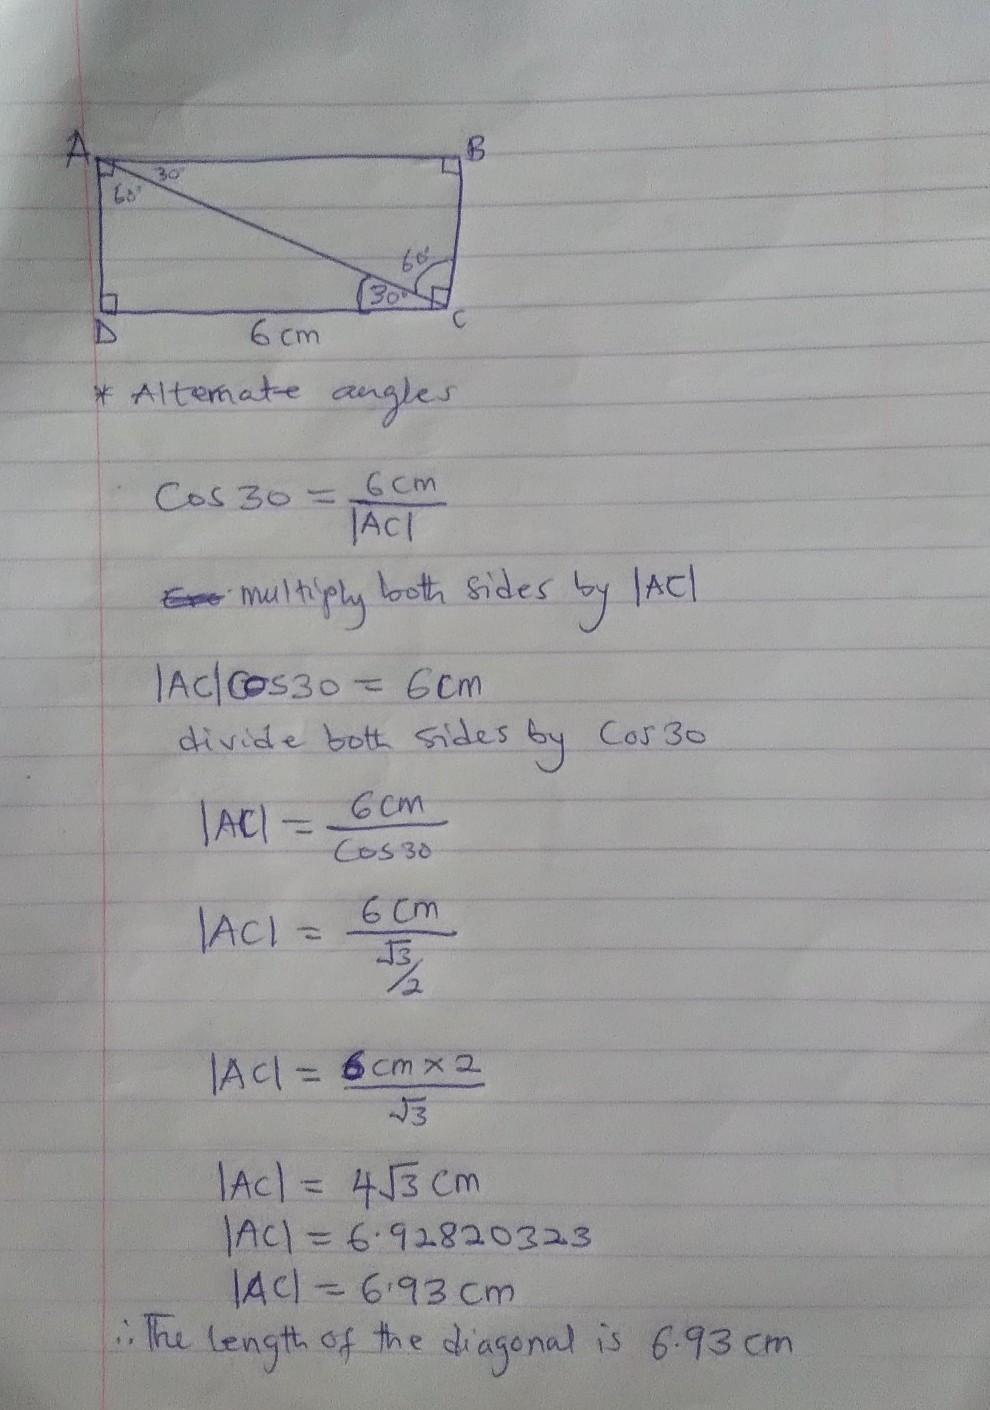 A
B
30°
60°
60°
30°
D
C
6 cm
* Alternate angles
Cos 30 = 6cm / |AC|
multiply both sides by |AC|
|AC|cos30 = 6cm
divide both sides by Cos 30
|AC| = 6cm / Cos 30
|AC| = 6cm / √3/2
|AC| = 6cm x 2 / √3
|AC| = 4√3 cm
|AC| = 6.92820323
|AC| = 6.93 cm
∴ The length of the diagonal is 6.93 cm